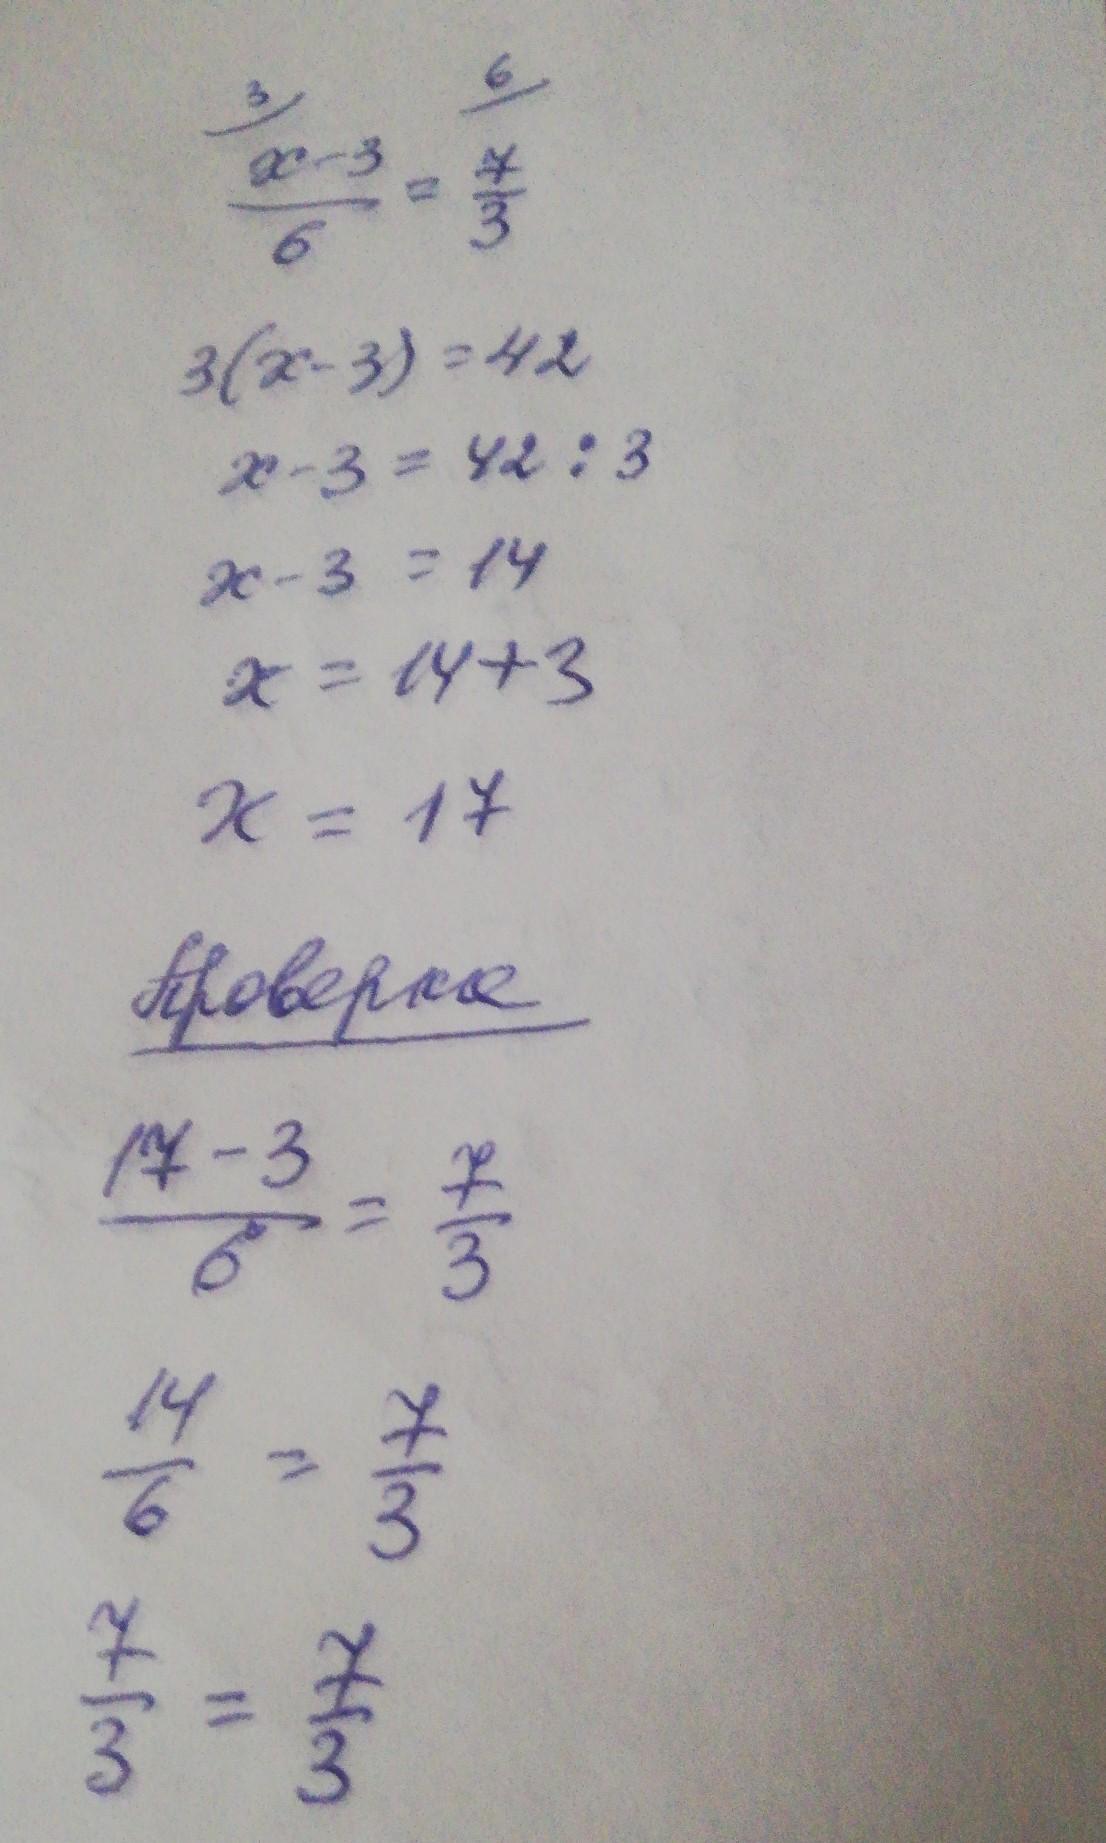 3/ 6/
x-3/6 = 7/3
3(x-3) = 42
x-3 = 42 : 3
x-3 = 14
x = 14+3
x = 17
Проверка
17-3/6 = 7/3
14/6 = 7/3
7/3 = 7/3